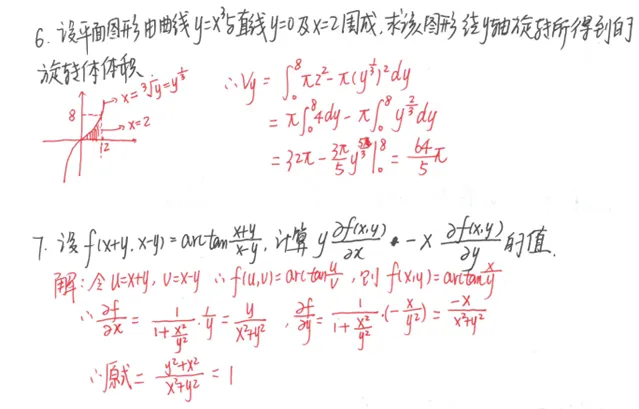 6. 设平面图形由曲线y=x³与直线y=0及x=2围成,求该图形绕y轴旋转所得到的
旋转体体积.
x=³√y=y^{1/3}
8
x=2
2
∴Vy = ∫₀⁸ π2²-π(y^{1/3})²dy
= π∫₀⁸4dy-π∫₀⁸ y^{2/3}dy
= 32π-3π/5 y^{5/3}|₀⁸ = 64/5 π
7. 设f(x+y, x-y)=arctan (x+y)/(x-y), 计算 y ∂f(x,y)/∂x - x ∂f(x,y)/∂y 的值.
解:令u=x+y, v=x-y ∴f(u,v)=arctan u/v, 则 f(x,y)=arctan x/y
∴ ∂f/∂x = 1/(1+x²/y²) · 1/y = y/(x²+y²), ∂f/∂y = 1/(1+x²/y²) · (-x/y²) = -x/(x²+y²)
∴原式 = (y²+x²)/(x²+y²) = 1